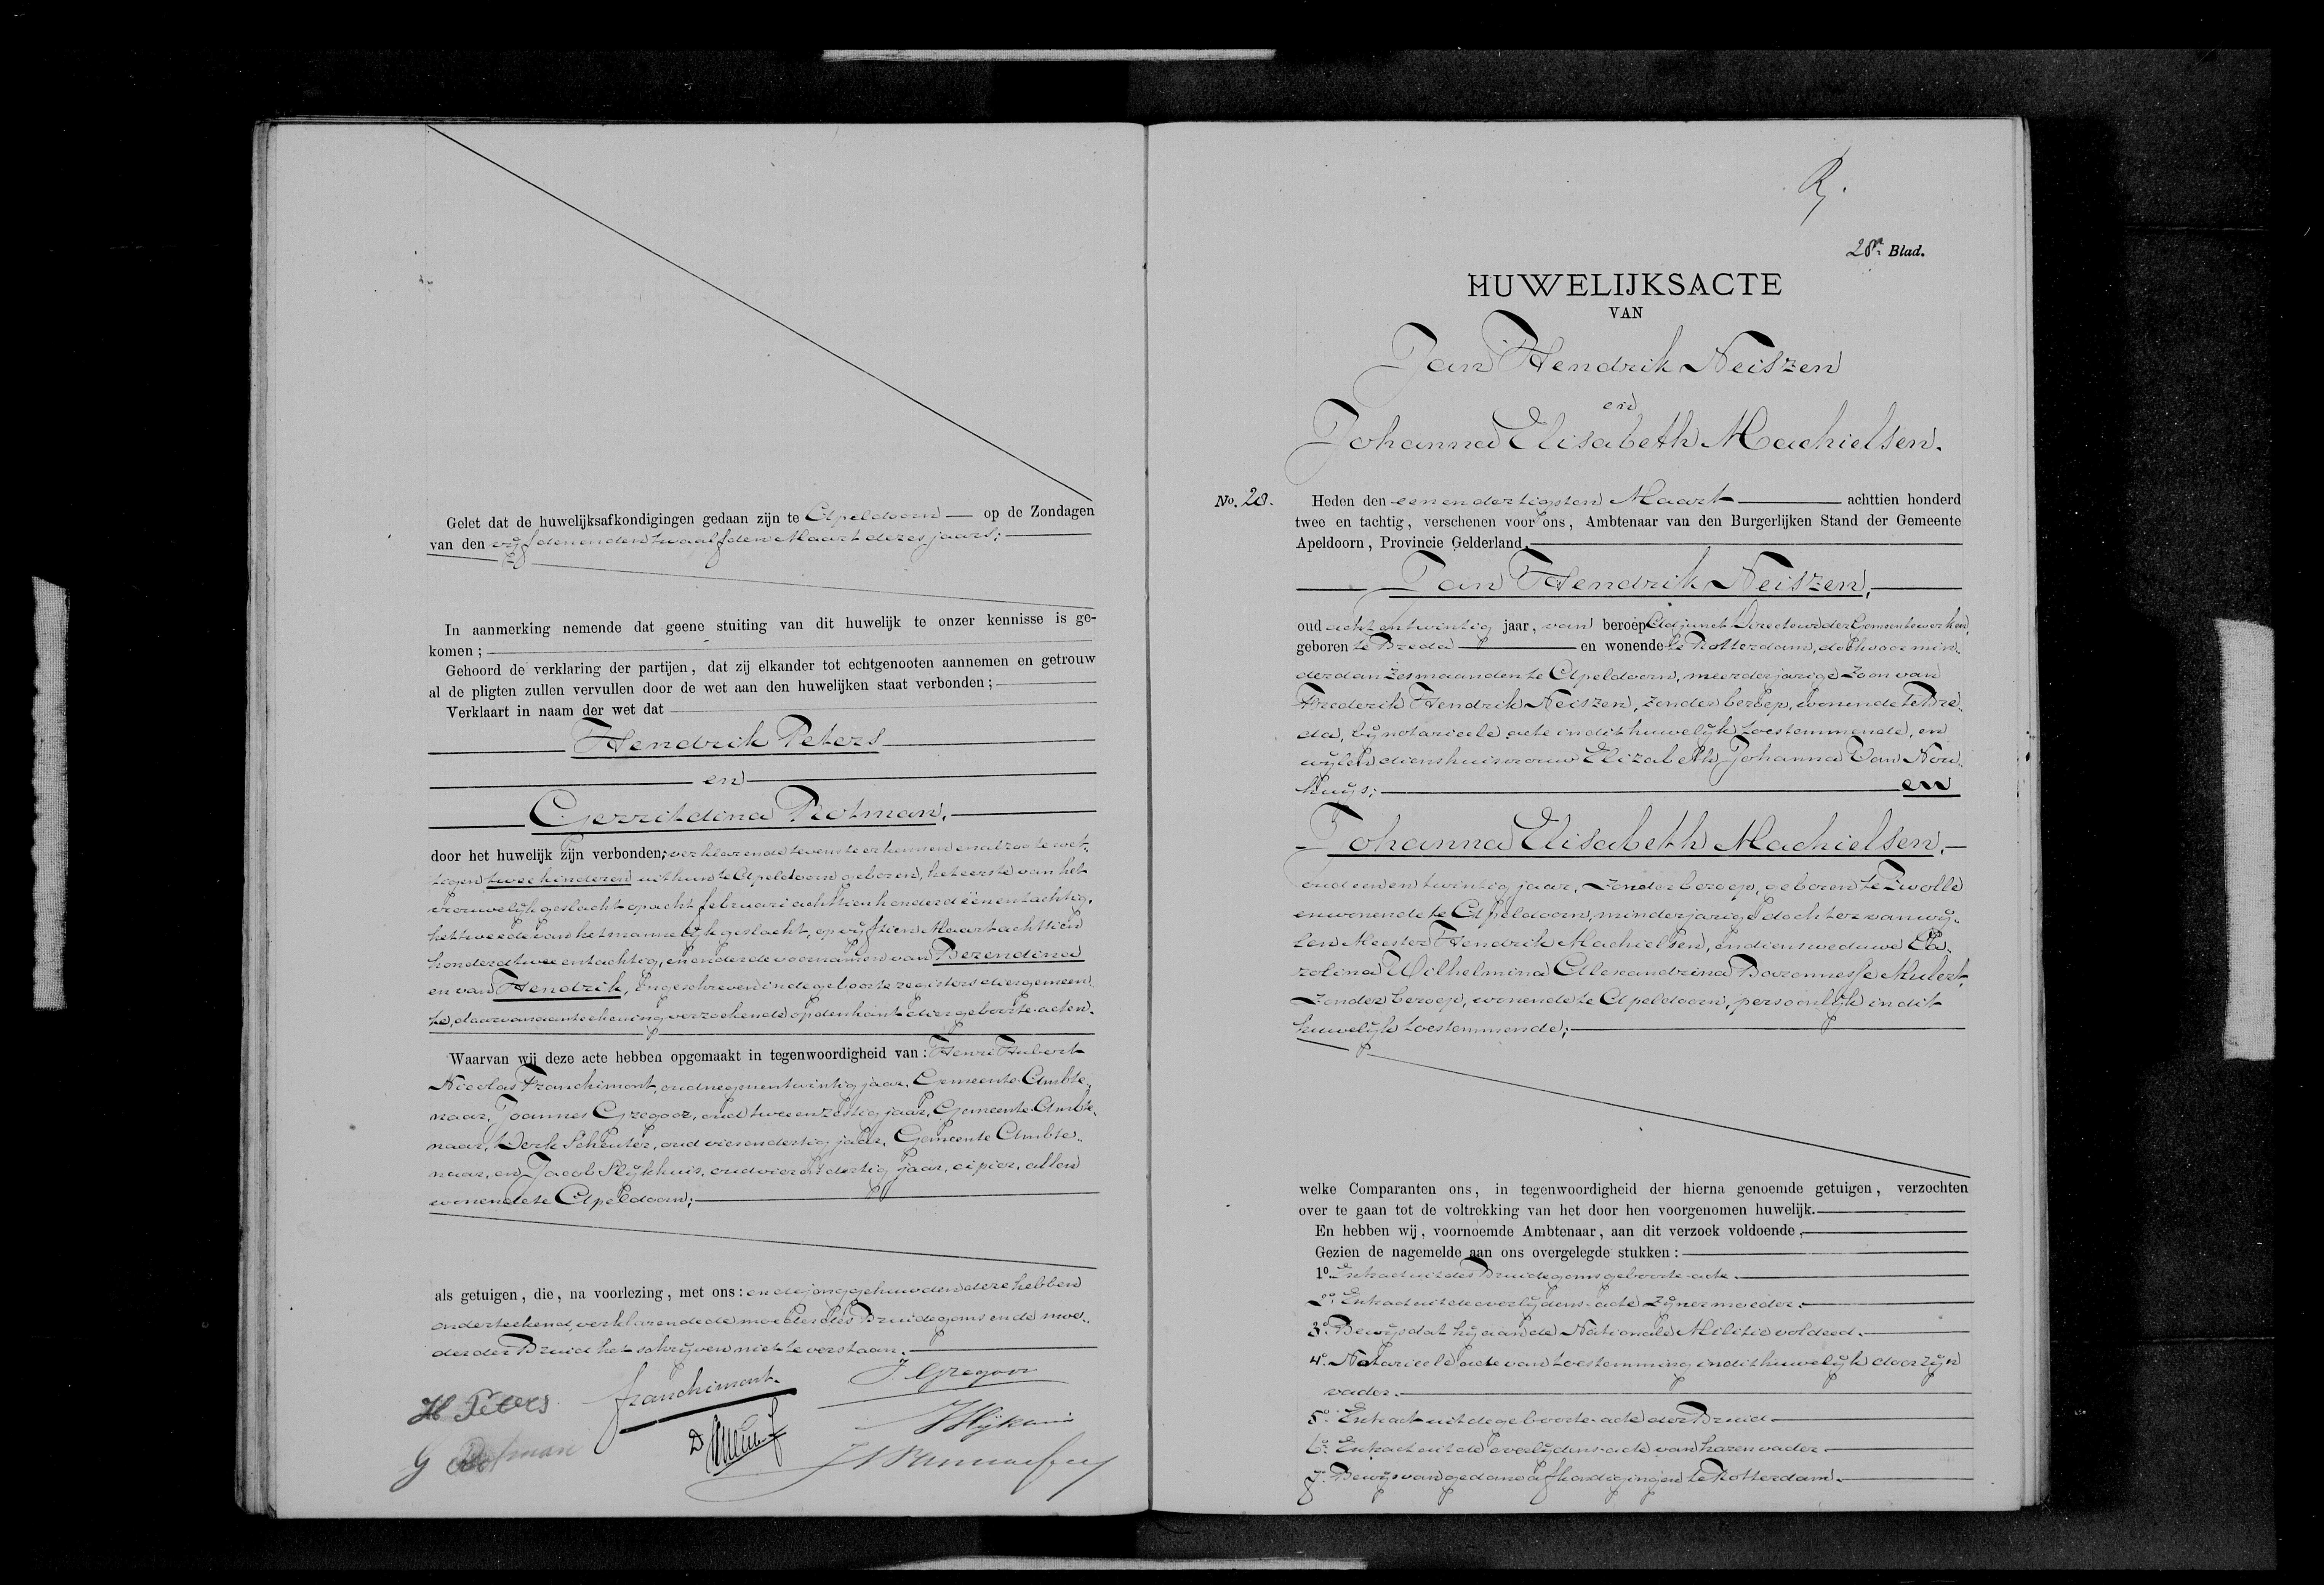 Gelet dat de huwelijksafkondigingen gedaan zijn te Apeldoorn op de Zondagen
van den vijfden en den twaalfden Maart dezes jaars;
In aanmerking nemende dat geene stuiting van dit huwelijk te onzer kennisse is ge-
komen;
Gehoord de verklaring der partijen, dat zij elkander tot echtgenooten aannemen en getrouw
al de pligten zullen vervullen door de wet aan den huwelijken staat verbonden;
Verklaart in naam der wet dat
Hendrik Peters
en
Gerritdina Rotman,
door het huwelijk zijn verbonden; verklarende tevens te erkennen en alzoo te wet-
tigen twee kinderen uit hun te Apeldoorn geboren, het eerste van het
vrouwelijk geslacht op acht februari achttien honderd een en tachtig,
het tweede van het mannelijk geslacht, op vijftien Maart achttien
honderd twee en tachtig, en onder de voornamen van Berendina
en van Hendrik, ingeschreven in de geboorte registers dier gemeen-
te, daarvan aanteekening verzoekende op den kant dier geboorte-acten.
Waarvan wij deze acte hebben opgemaakt in tegenwoordigheid van: Henri Hubert
Nicolas Franchimont, oud negen en twintig jaar, Gemeente-Ambte-
naar, Joannes Gregoor, oud twee en zestig jaar, Gemeente-Ambte-
naar, Derk Scheuter, oud vier en dertig jaar, Gemeente Ambte-
naar, en Jacob Slijkhuis, oud vier en dertig jaar, cipier, allen
wonende te Apeldoorn;
als getuigen, die, na voorlezing, met ons: en de jonggehuwden deze hebben
onderteekend, verklarende de moeder des Bruidegoms en de moe-
der der Bruid het schrijven niet te verstaan.
H Peters franchimont J. Gregoor
G Rotman D JSlijkhuis
28e Blad.
HUWELIJKSACTE
VAN
Jan Hendrik Neiszen
en
Johanna Elisabeth Machielsen.
No. 28. Heden den eenendertigsten Maart achttien honderd
twee en tachtig, verschenen voor ons, Ambtenaar van den Burgerlijken Stand der Gemeente
Apeldoorn, Provincie Gelderland,
Jan Hendrik Neiszen,
oud acht en twintig jaar, van beroep Adjunct Directeur der Gemeentewerken,
geboren te Breda en wonende te Rotterdam, doch voor min-
der dan zes maanden te Apeldoorn, meerderjarige zoon van
Frederik Hendrik Neiszen, zonder beroep, wonende te Bre-
da, bij notarieele acte in dit huwelijk toestemmende, en
wijlen diens huisvrouw Elizabeth Johanna Van Nou-
huys; en
Johanna Elisabeth Machielsen,
oud een en twintig jaar, zonder beroep, geboren te Zwolle
en wonende te Apeldoorn, minderjarige dochter van wij-
len Meester Hendrik Machielsen, en diens weduwe Ca-
rolina Wilhelmina Alexandrina Baronnesse Mulert,
zonder beroep, wonende te Apeldoorn, persoonlijk in dit
huwelijk toestemmende;
welke Comparanten ons, in tegenwoordigheid der hierna genoemde getuigen, verzochten
over te gaan tot de voltrekking van het door hen voorgenomen huwelijk.
En hebben wij, voornoemde Ambtenaar, aan dit verzoek voldoende,
Gezien de nagemelde aan ons overgelegde stukken:
1o. Extract uit des Bruidegoms geboorte-acte.
2o. Extract uit de overlijdens-acte zijner moeder.
3o. Bewijs dat hij aan de Nationale Militie voldeed.
4o. Notarieele acte van toestemming in dit huwelijk door zijn
vader.
5o. Extract uit de geboorte-acte der Bruid
6o. Extract uit de overlijdens-acte van haren vader.
7o. Bewijs van gedane afkondigingen te Rotterdam.